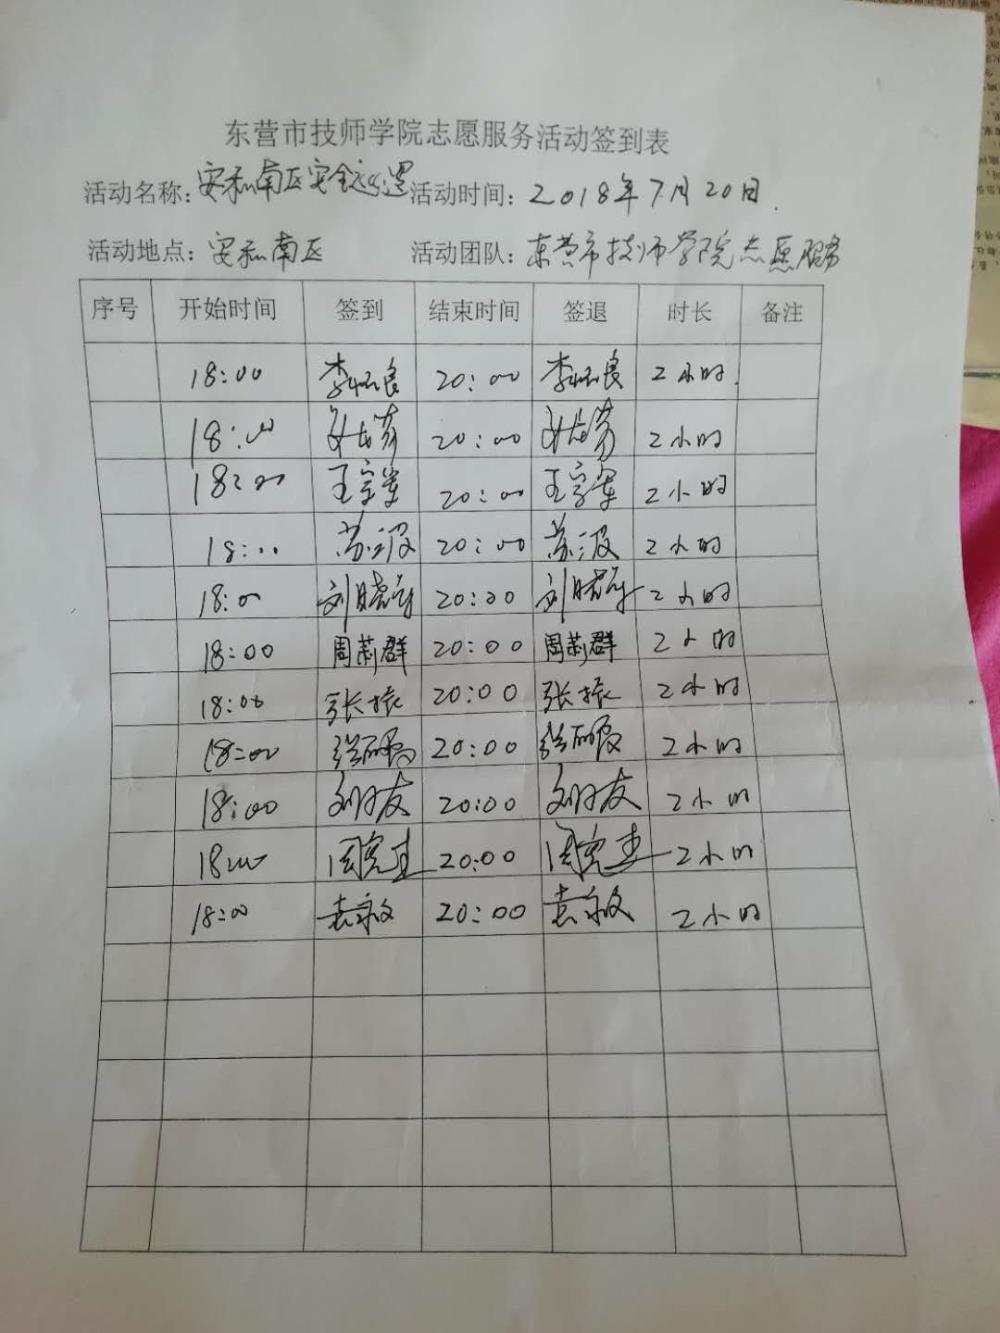 东营市技师学院志愿服务活动签到表
活动名称：安和南区安全巡逻 活动时间：2018年7月20日.
活动地点：安和南区 活动团队：东营市技师学院志愿服务
序号 开始时间 签到 结束时间 签退 时长 备注
18:00 20:00 2小时
18:00 20:00 2小时
18:00 王宗军 20:00 王宗军 2小时
18:00 20:00 2小时
18:00 刘晓 20:00 刘晓 2小时
18:00 周莉群 20:00 周莉群 2小时
18:00 张振 20:00 张振 2小时
18:00 张丽霞 20:00 张丽霞 2小时
18:00 刘友 20:00 刘友 2小时
18:00 周宪 20:00 周宪 2小时
18:00 袁敏 20:00 袁敏 2小时